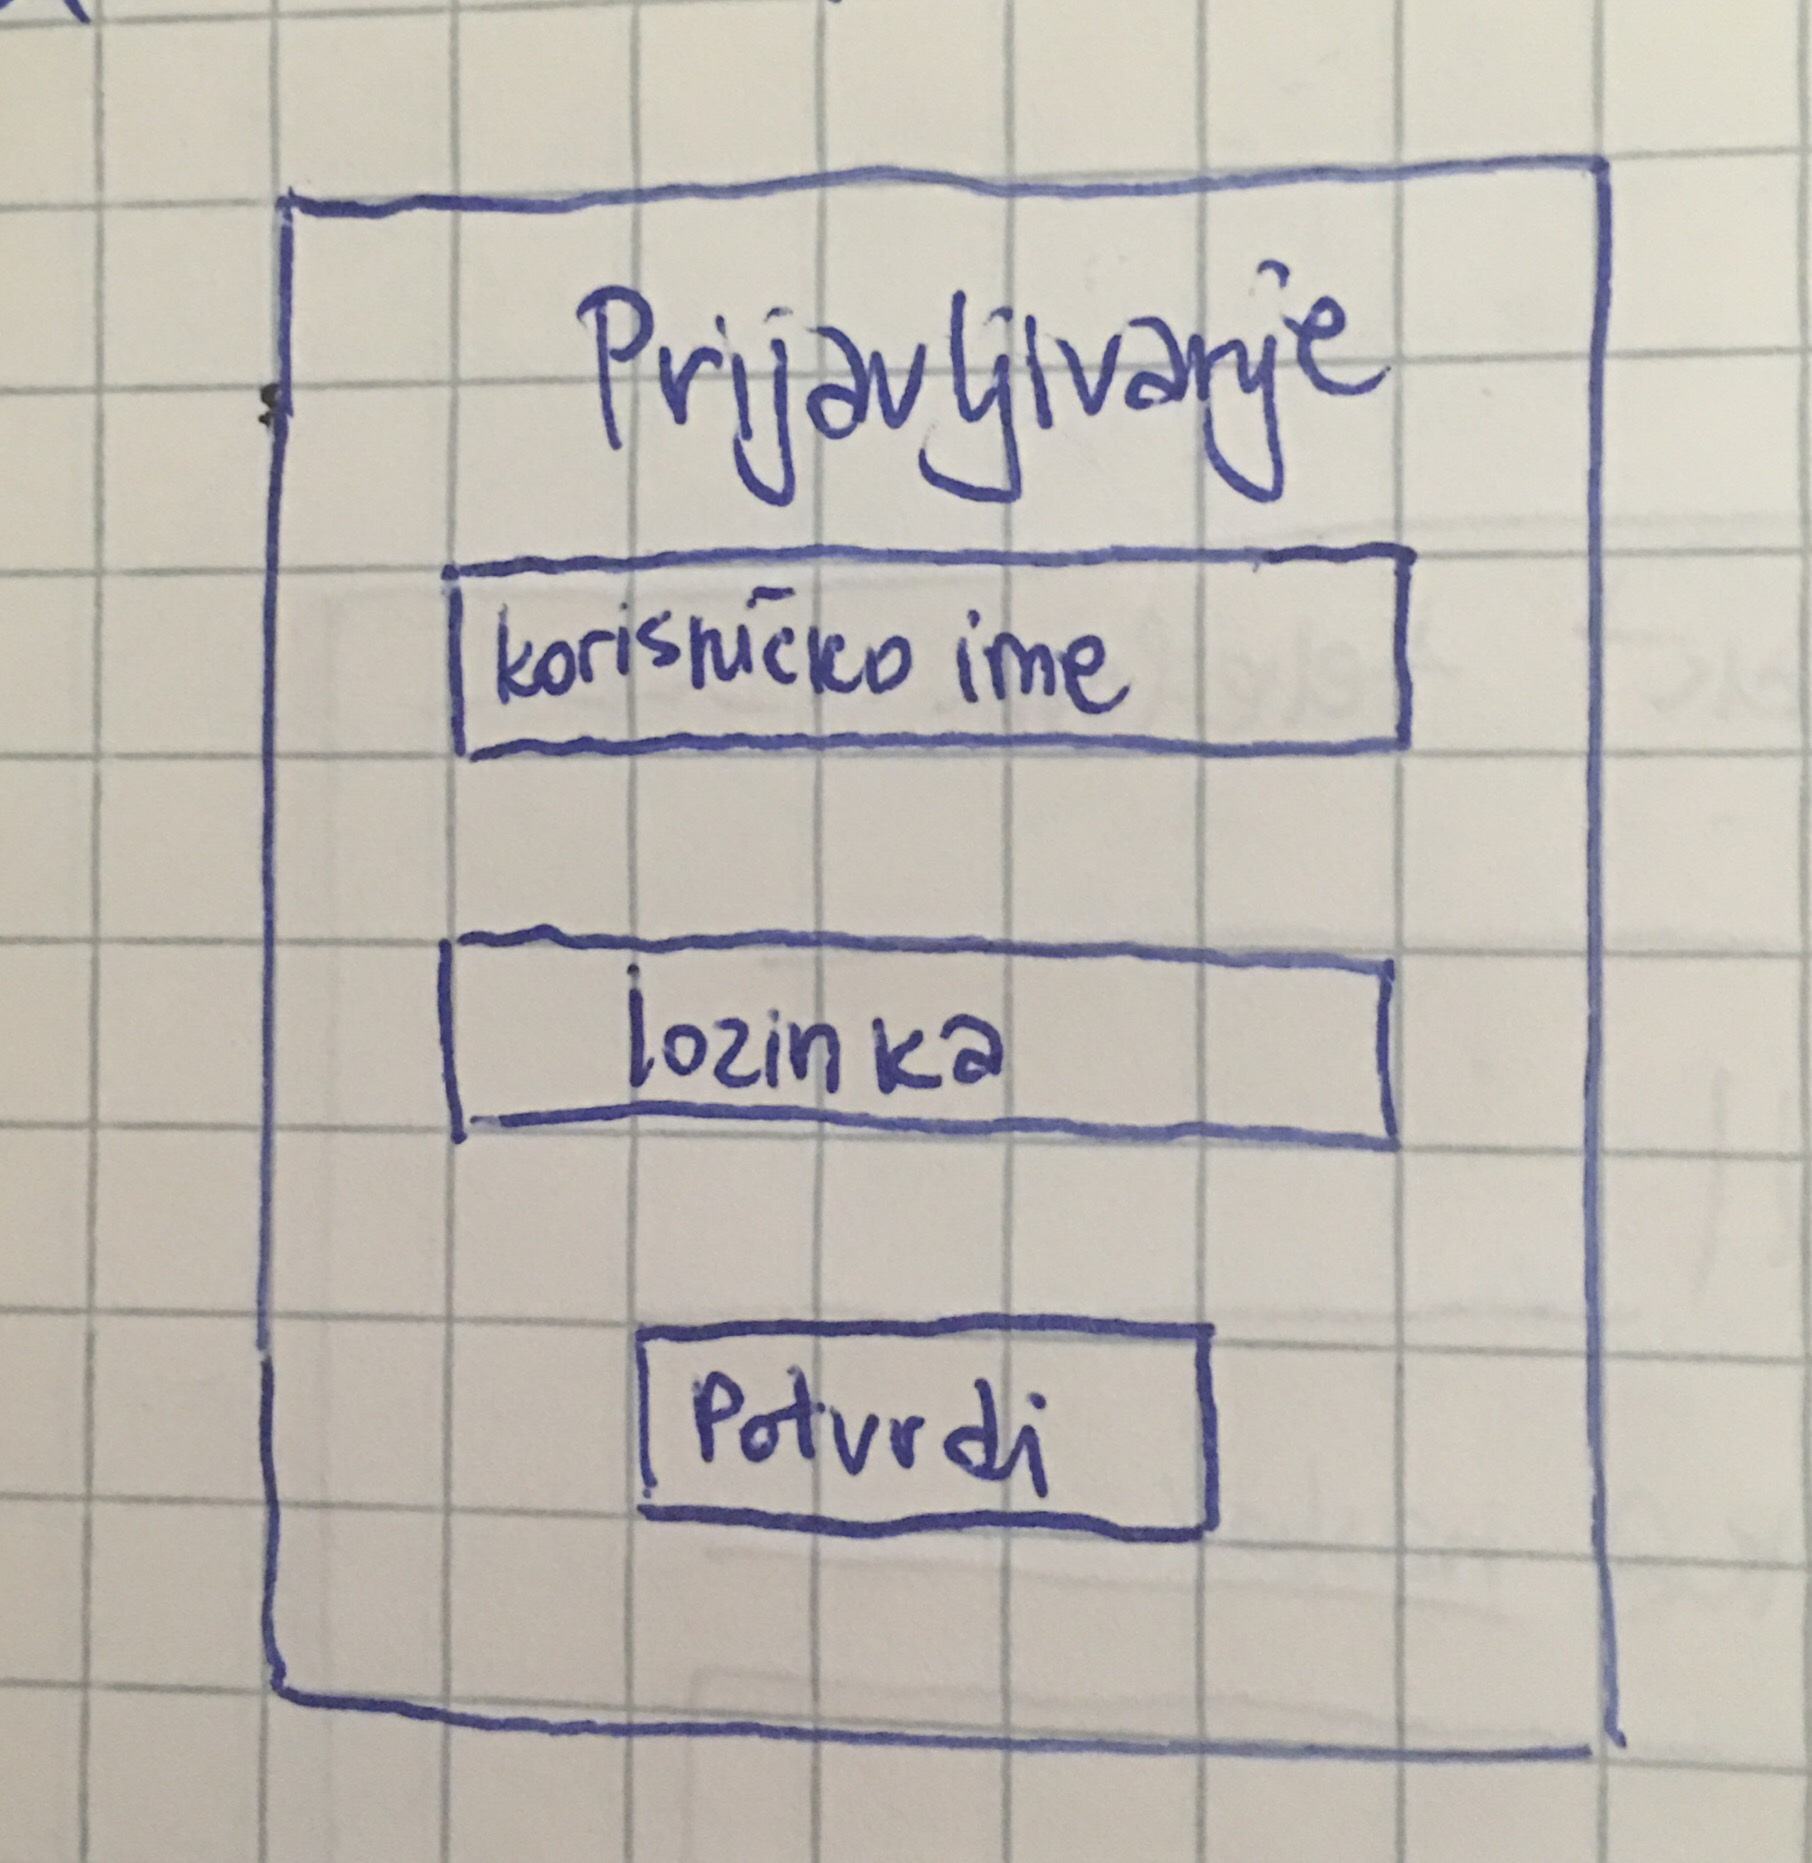 Prijavljivanje
korisničko ime
lozinka
Potvrdi